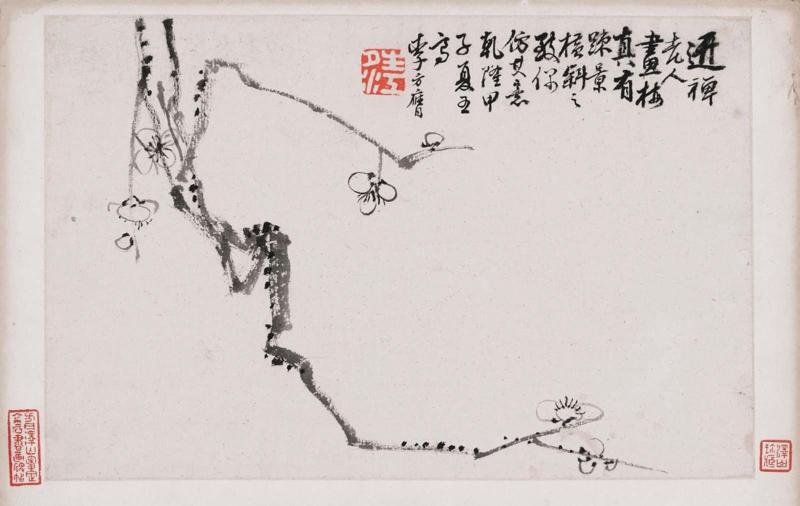 逃禪
老人
畫梅
真有
踈景
橫斜之
致偶
仿其意
乾隆甲
子夏五
寫
李方膺